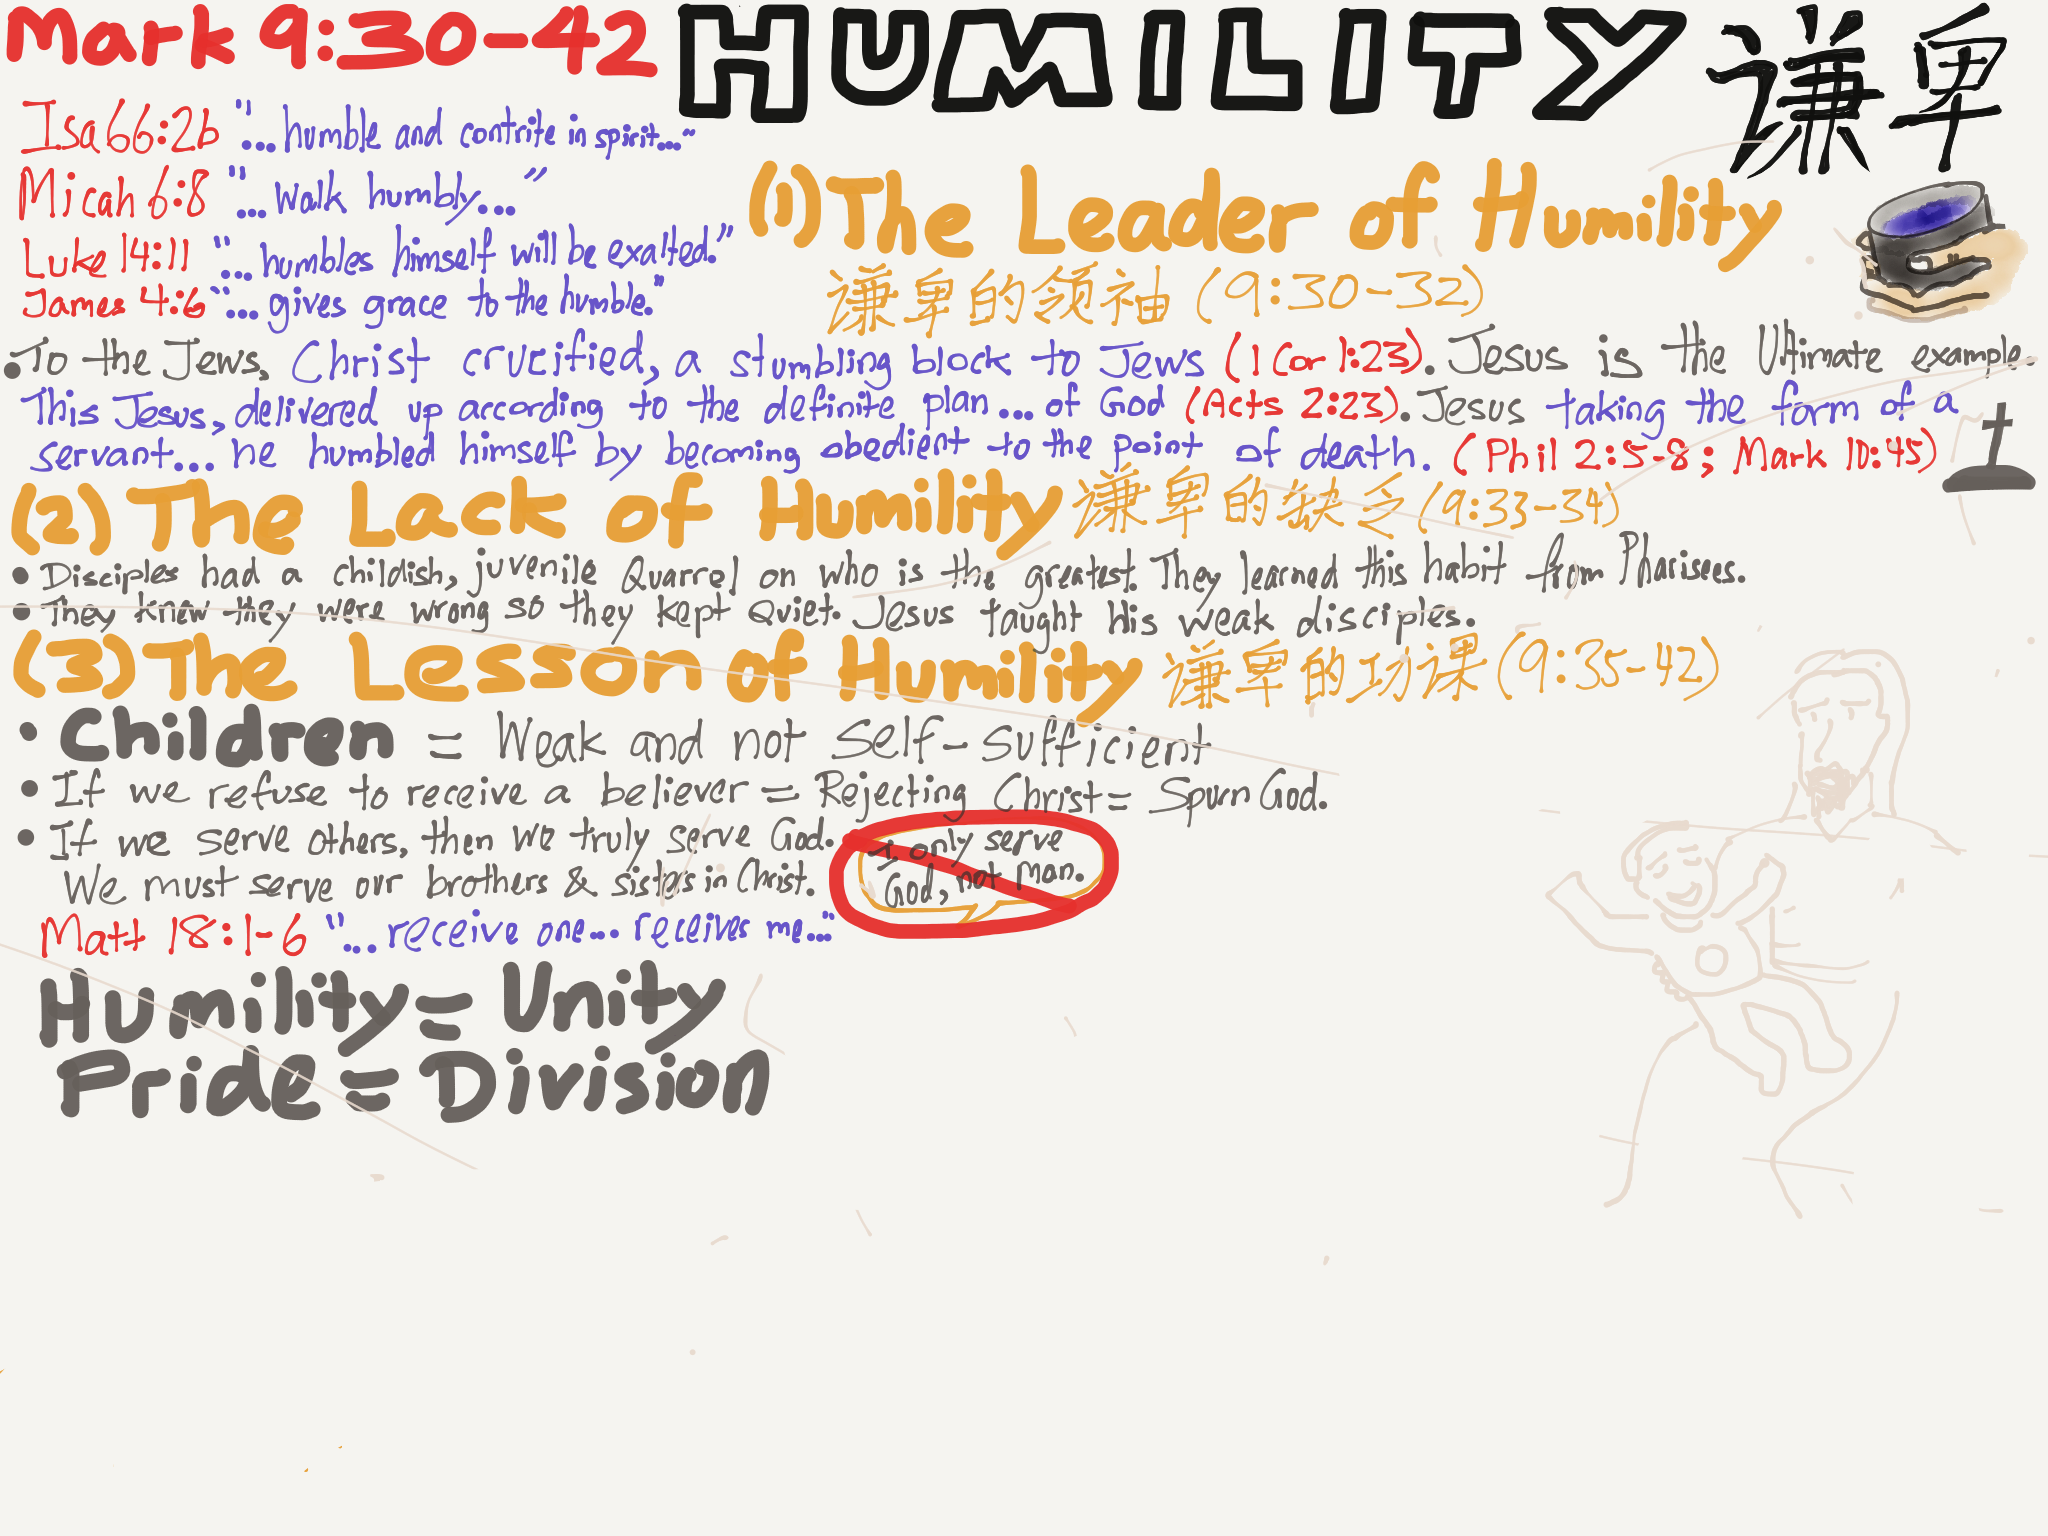 Mark 9:30-42 HUMILITY 谦卑
Isa 66:2b "...humble and contrite in spirit..."
Micah 6:8 "...walk humbly..."
Luke 14:11 "...humbles himself will be exalted."
James 4:6 "...gives grace to the humble."
(1) The Leader of Humility
谦卑的领袖 (9:30-32)
• To the Jews, Christ crucified, a stumbling block to Jews (1 Cor 1:23). Jesus is the Ultimate example.
This Jesus, delivered up according to the definite plan... of God (Acts 2:23). Jesus taking the form of a
servant... he humbled himself by becoming obedient to the point of death. (Phil 2:5-8; Mark 10:45)
(2) The Lack of Humility 谦卑的缺乏 (9:33-34)
• Disciples had a childish, juvenile Quarrel on who is the greatest. They learned this habit from Pharisees.
• They knew they were wrong so they kept Quiet. Jesus taught His weak disciples.
(3) The Lesson of Humility 谦卑的功课 (9:35-42)
• Children = Weak and not Self-sufficient
• If we refuse to receive a believer = Rejecting Christ = Spurn God.
• If we serve others, then we truly serve God.
We must serve our brothers & sisters in Christ.
I only serve
God, not man.
Matt 18:1-6 "... receive one... receives me..."
Humility = Unity
Pride = Division